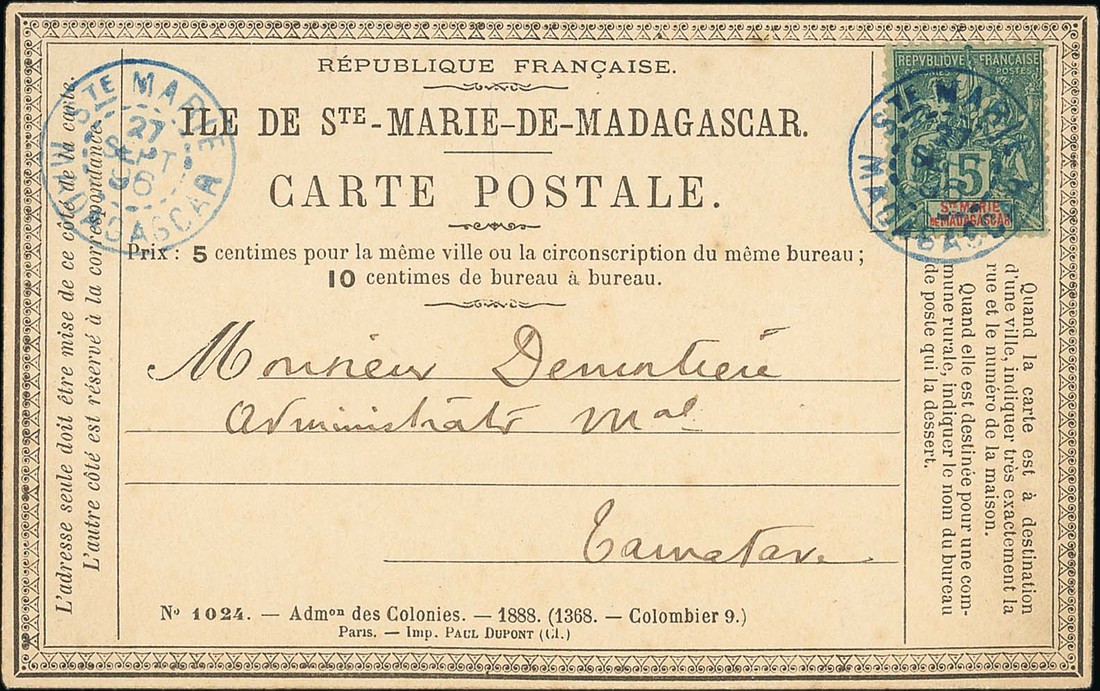 RÉPUBLIQUE FRANÇAISE.
ILE DE STE-MARIE-DE-MADAGASCAR.
CARTE POSTALE.
Prix : 5 centimes pour la même ville ou la circonscription du même bureau ;
10 centimes de bureau à bureau.
Monsieur
Administratr Mal
Tamatave
No 1024. — Admon des Colonies. — 1888. (1368. — Colombier 9.)
Paris. — Imp. PAUL DUPONT (Cl.)
L'adresse seule doit être mise de ce côté de la carte.
L'autre côté est réservé à la correspondance.
STE MARIE
27
SEPT
96
MADAGASCAR
RÉPUBLIQUE FRANÇAISE
COLONIES POSTES
5
STE MARIE
DE MADAGASCAR
STE MARIE
27
MADAGASCAR
Quand la carte est à destination
d'une ville, indiquer très exactement la
rue et le numéro de la maison.
Quand elle est destinée pour une com-
mune rurale, indiquer le nom du bureau
de poste qui la dessert.